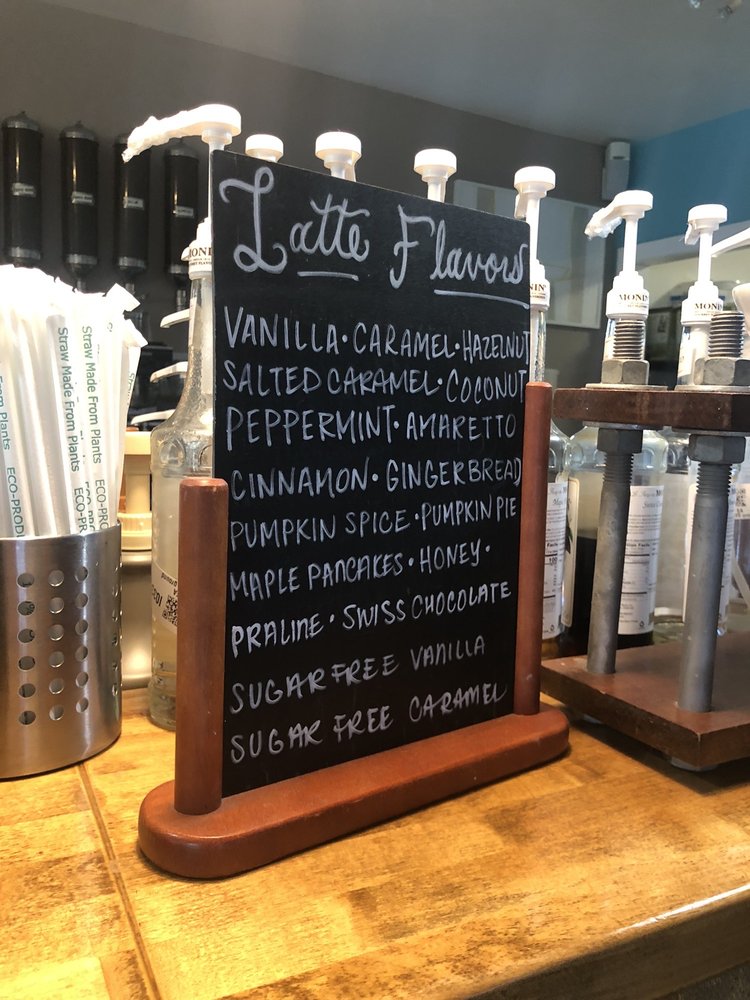 Latte Flavors
VANILLA · CARAMEL · HAZELNUT
SALTED CARAMEL · COCONUT
PEPPERMINT · AMARETTO
CINNAMON · GINGERBREAD
PUMPKIN SPICE · PUMPKIN PIE
MAPLE PANCAKES · HONEY ·
PRALINE · SWISS CHOCOLATE
SUGAR FREE VANILLA
SUGAR FREE CARAMEL
Straw Made From Plants
Straw Made From Plants
Straw Made From Plants
ECO-PROD
MONIN